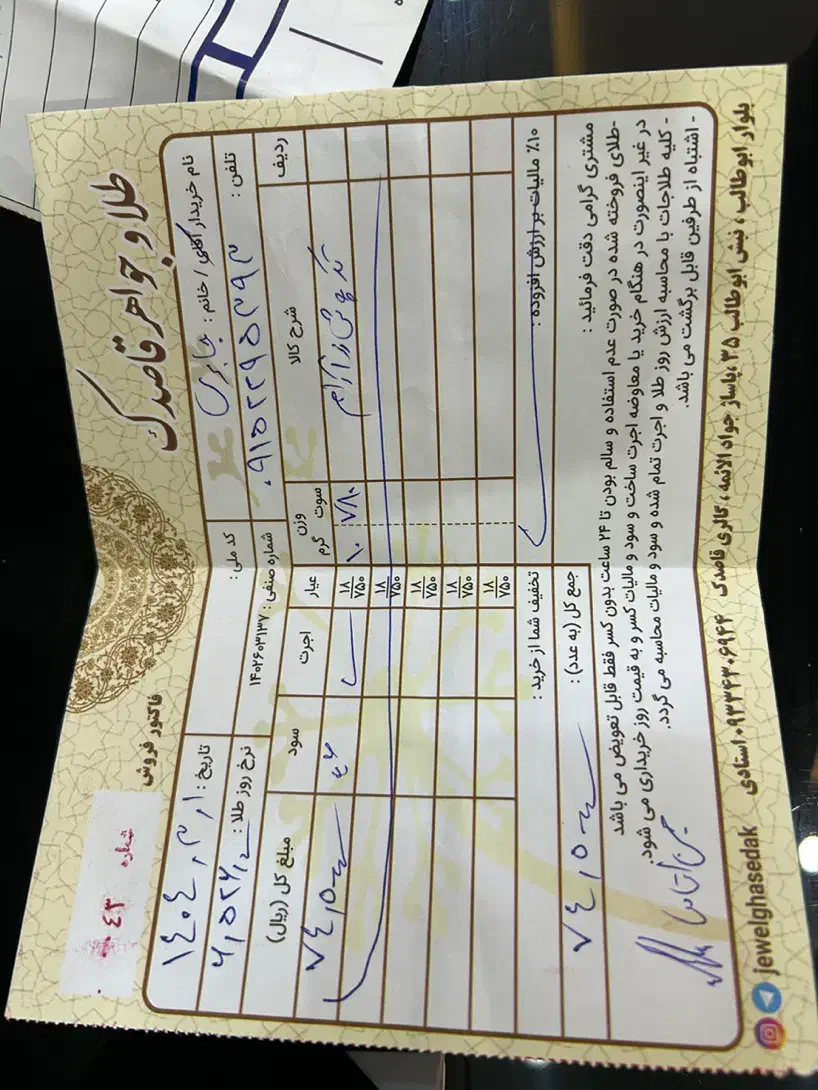 طلا و جواهر قاصدک
فاکتور فروش
شماره
۰۰۴۳
نام خریدار آقای / خانم : جابری
کد ملی :
تاریخ : ۱۴۰۴٫۳٫۱
تلفن : ۰۹۱۵۲۲۹۵۲۹۳
شماره صنفی : ۱۴۰۲۶۰۳۱۳۷
نرخ روز طلا :
ردیف شرح کالا وزن گرم سوت عیار اجرت سود مبلغ کل (ریال)
۱۰ ۷۸۰ ۱۸ ۷۵۰
۱۸ ۷۵۰
۱۸ ۷۵۰
۱۸ ۷۵۰
۱۸ ۷۵۰
۱۰٪ مالیات بر ارزش افزوده :
تخفیف شما از خرید :
جمع کل (به عدد) :
مشتری گرامی دقت فرمائید :
-طلای فروخته شده در صورت عدم استفاده و سالم بودن تا ۲۴ ساعت بدون کسر فقط قابل تعویض می باشد
در غیر اینصورت در هنگام خرید یا معاوضه اجرت ساخت و سود و مالیات کسر و به قیمت روز خریداری می شود.
- کلیه طلاجات با محاسبه ارزش روز طلا و اجرت تمام شده و سود و مالیات محاسبه می گردد.
- اشتباه از طرفین قابل برگشت می باشد.
بلوار ابوطالب ، نبش ابوطالب ۳۵ ،پاساژ جواد الائمه ، گالری قاصدک ۰۹۳۳۴۳۰۶۹۴۴ استادی
jewelghasedak